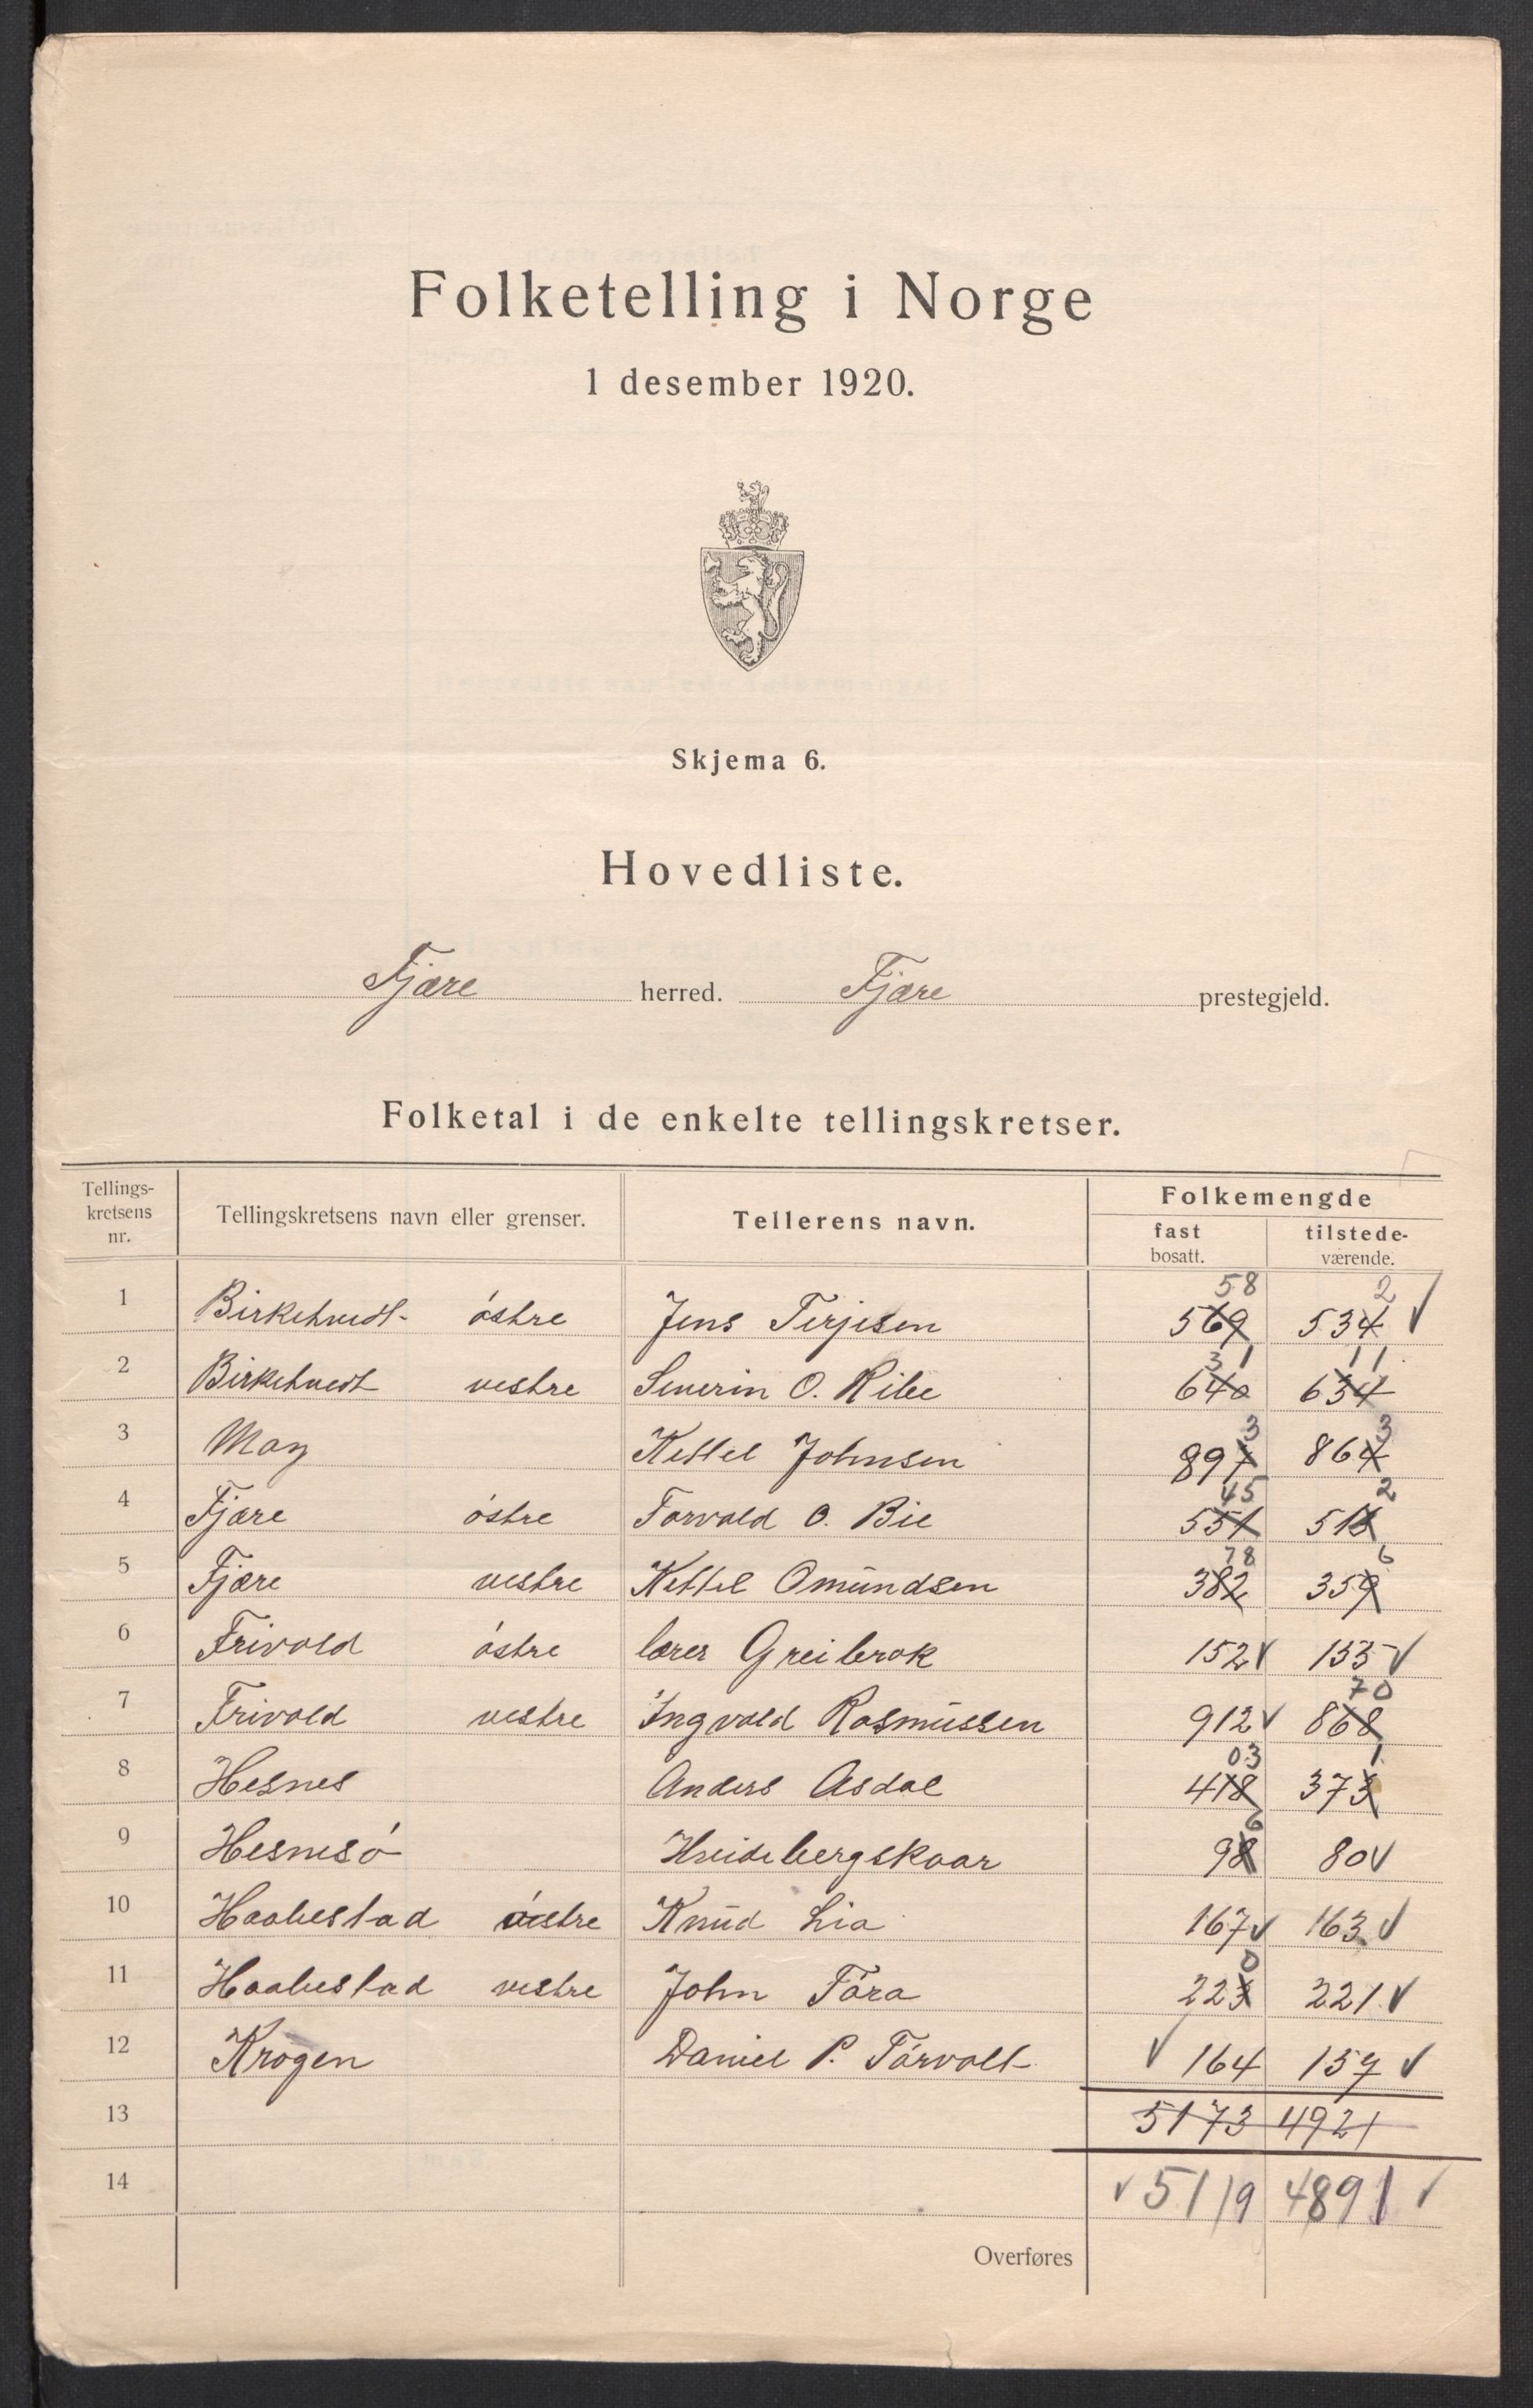 Folketelling i Norge
1 desember 1920.
Skjema 6.
Hovedliste.
Fjære herred. Fjære prestegjeld.
Folketal i de enkelte tellingskretser.
Tellings-kretsens nr. Tellingskretsens navn eller grenser. Tellerens navn. Folkemengde fast bosatt. tilstede-værende.
58 2
1 Birketvedt- östre Jens Terjesen 569 534 ✓
31 11
2 Birketvedt vestre Severin O. Ribe 640 634
3 3
3 Moy Kettel Johnsen 897 864
45 2
4 Fjære östre Torvald O. Bie 551 513
78 6
5 Fjære vestre Kettel Omundsen 382 359
6 Frivold östre lærer Greibrok 152 ✓ 133 ✓
70
7 Frivold vestre Ingvald Rasmussen 912 ✓ 868
03 1
8 Hesnes Anders Asdal 418 373
6
9 Hesnesö Hvidebergskaar 98 80 ✓
10 Haabestad östre Knud Lia 167 ✓ 163 ✓
0
11 Haabestad vestre John Töra 223 221 ✓
12 Krogen Daniel P. Törvolt ✓ 164 157 ✓
13 5173 4921
14 ✓ 5119 4891 ✓
Overføres